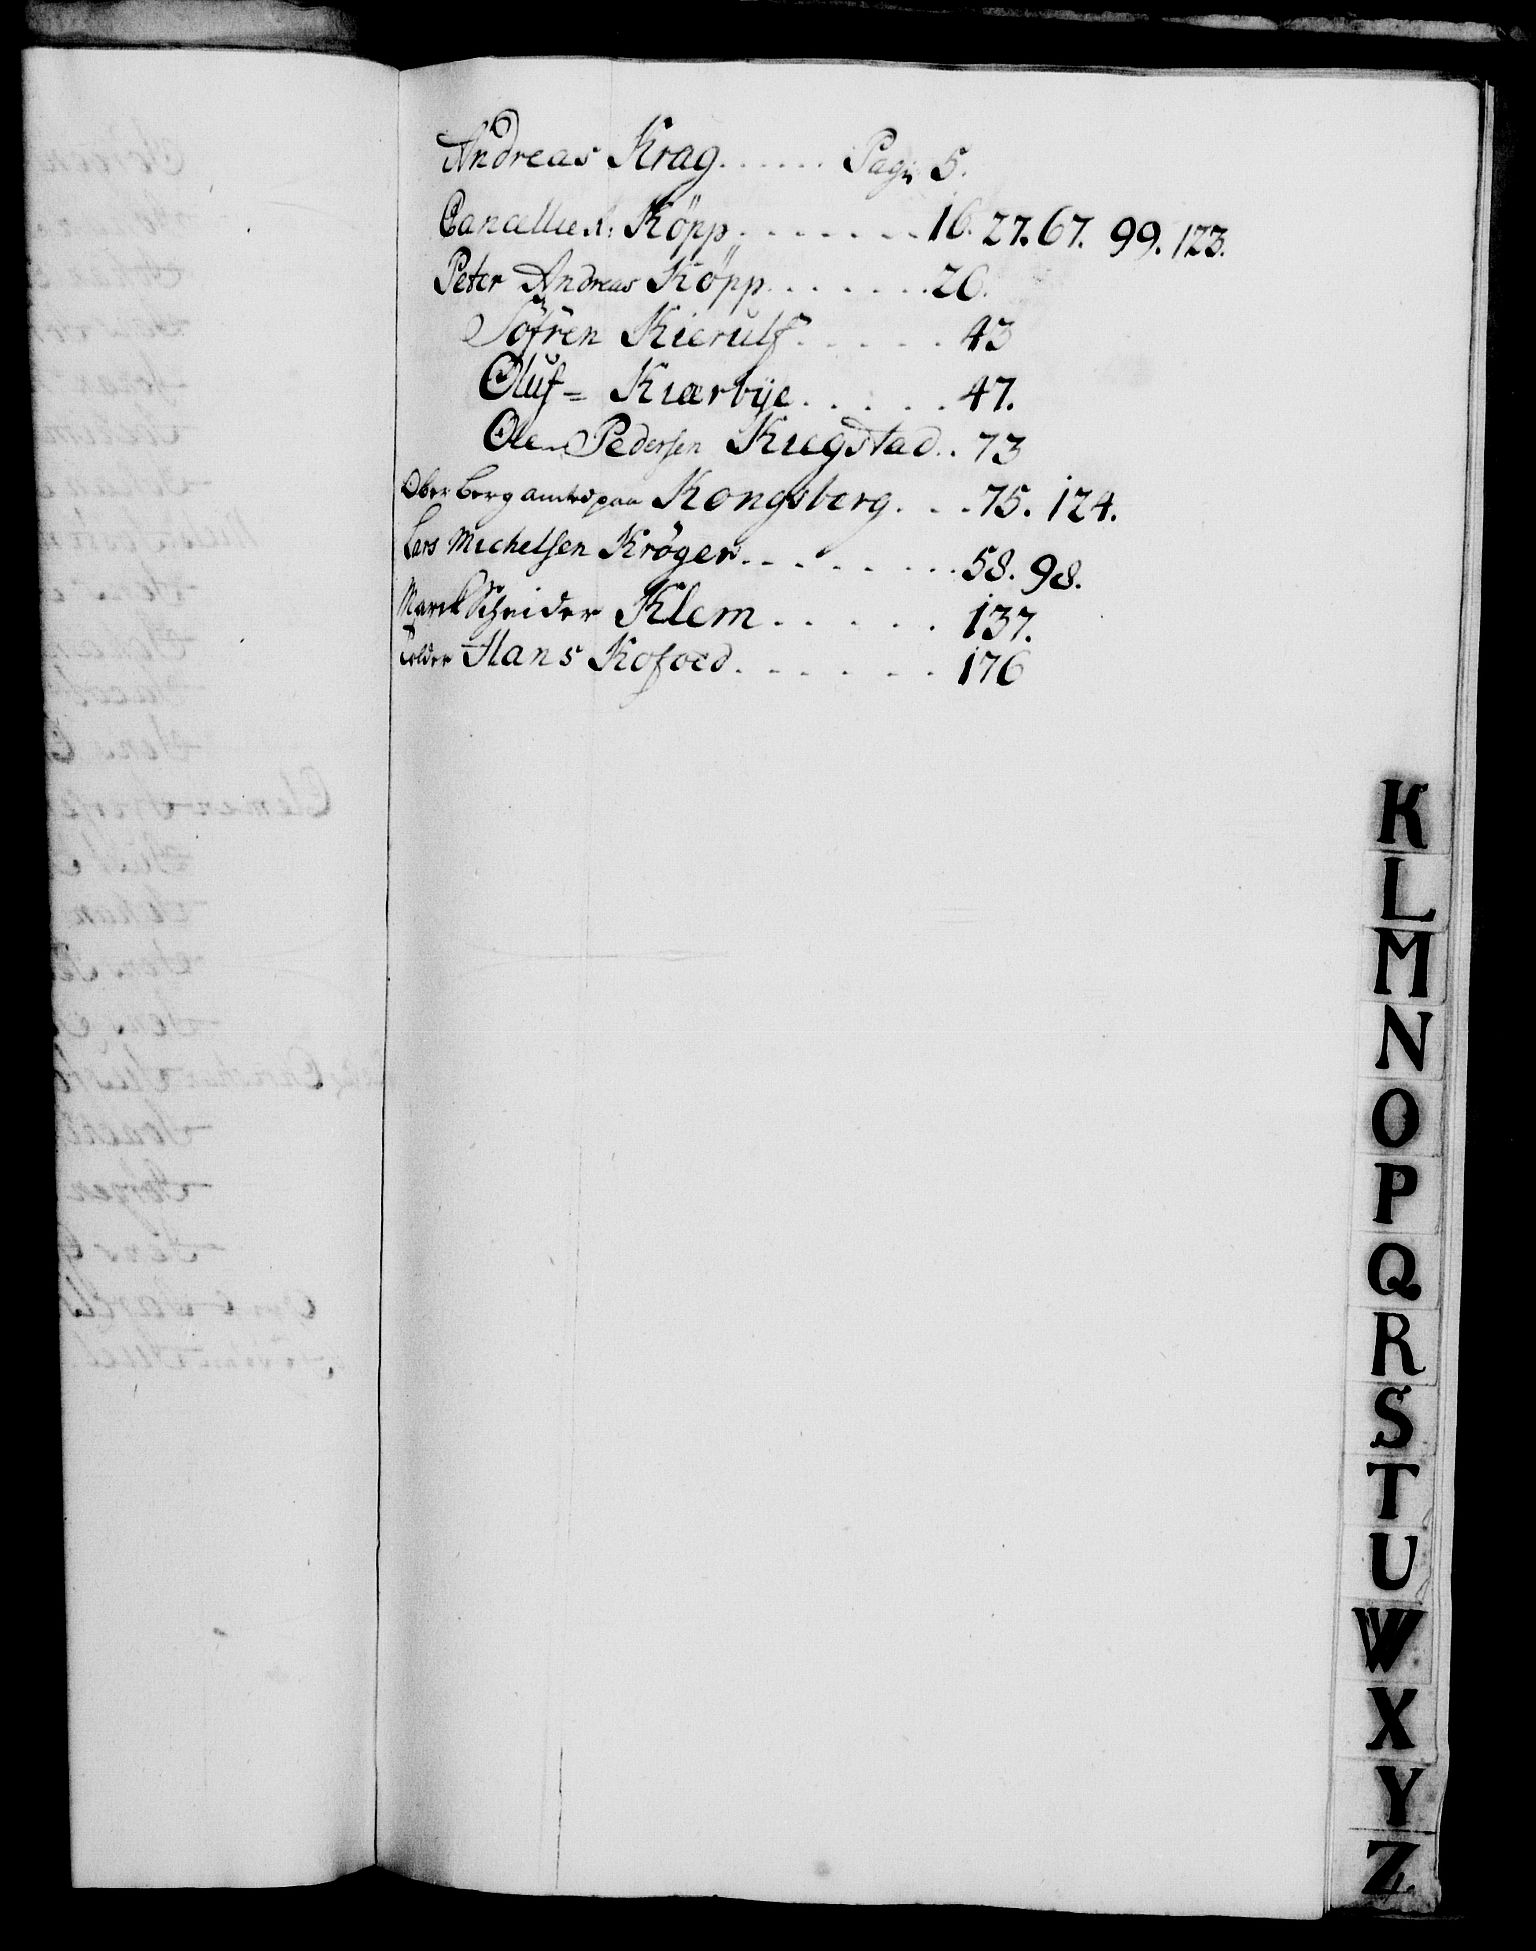 Andreas Krag...... Pag: 5.
Cancellie R: Köpp........16. 27. 67. 99. 123.
Peter Andreas Köpp.......26.
Söfren Kierulf......43
Oluf= Kiærbÿe......47.
Ole Pedersen Kiegstad..73
Ober berg amtet paa Kongsberg....75. 124.
Lars Michelsen Kröger.........58. 98.
Marcl Schnider Klem......137.
Tolder Hans Kofoed.......176
K
L
M
N
O
P
Q
R
S
T
U
W
X
Y
Z